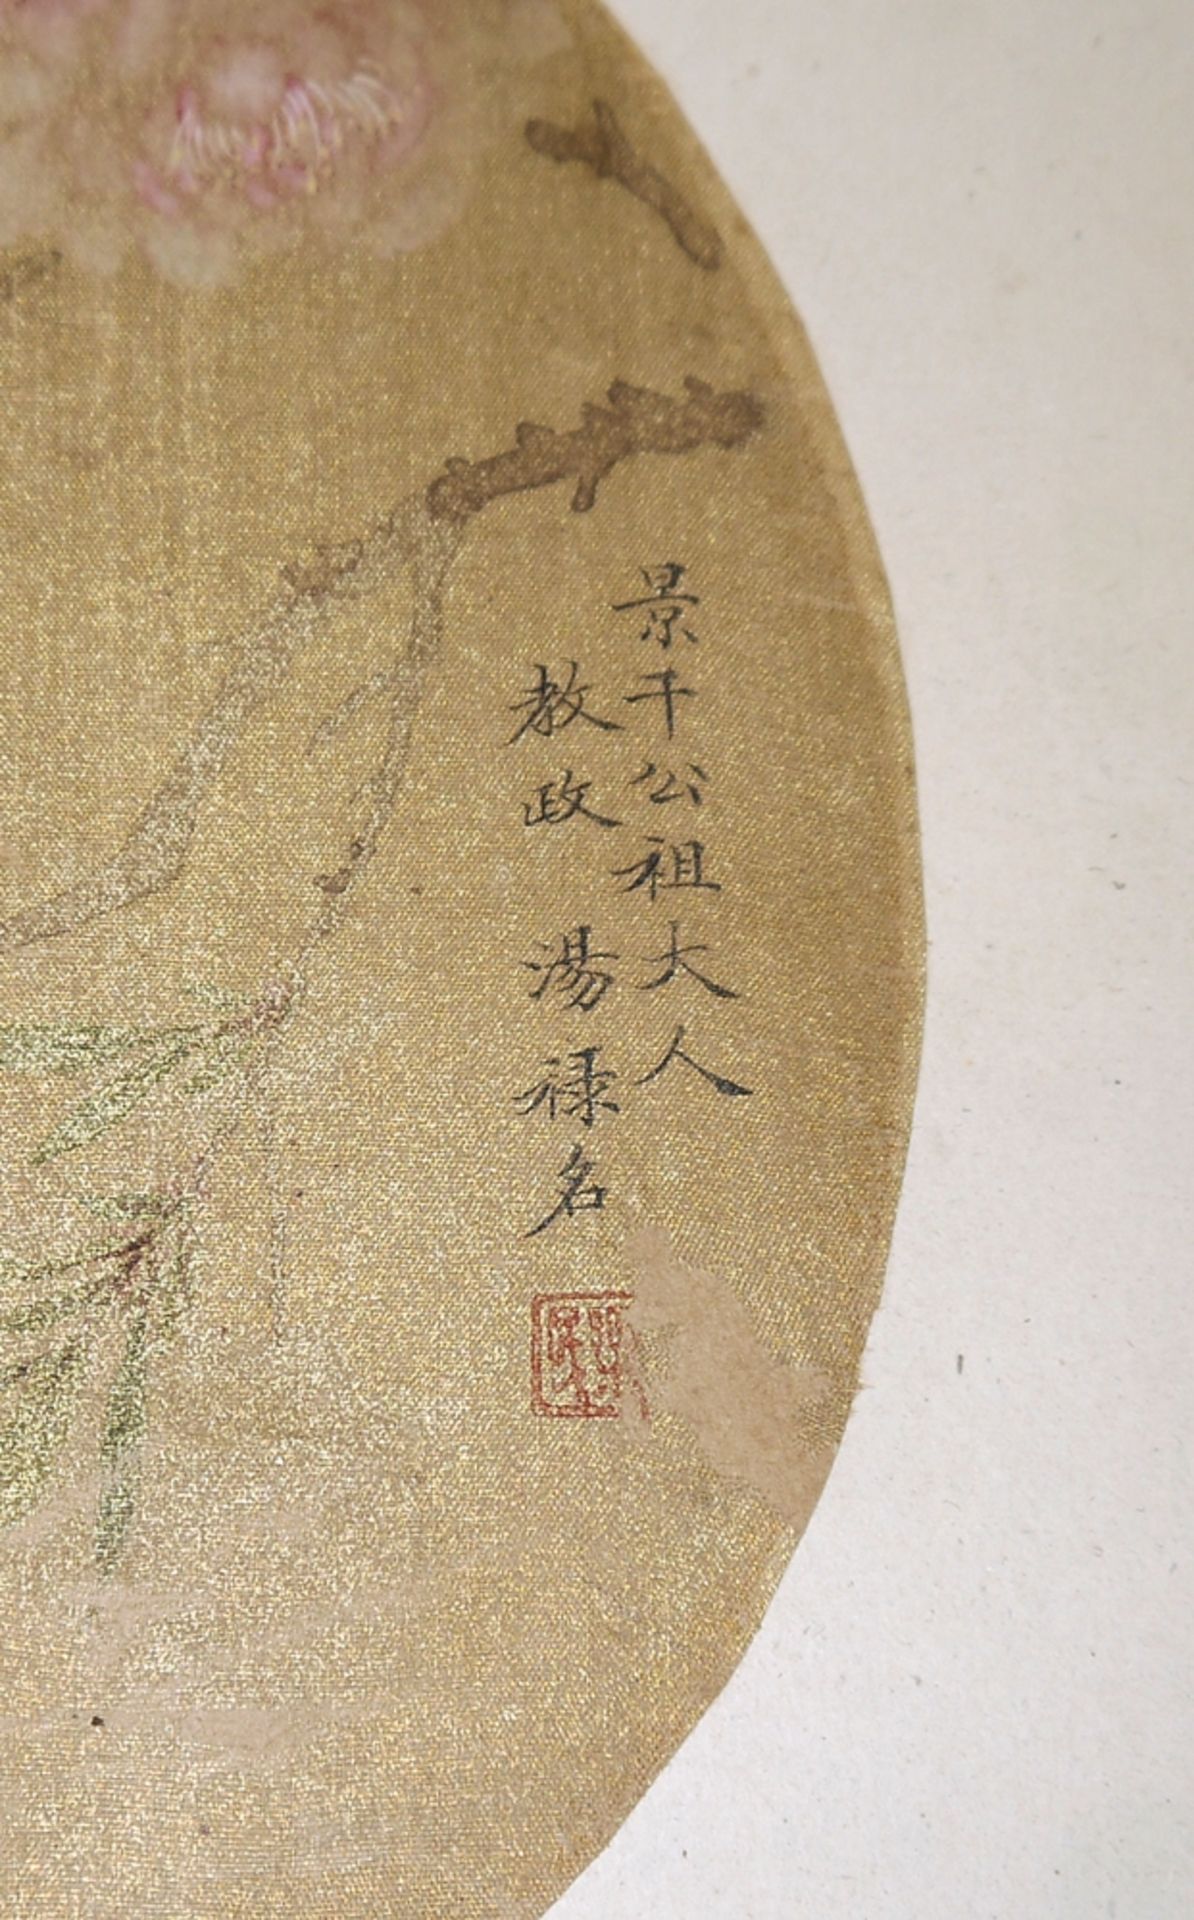 景千公祖大人
教政 湯祿名